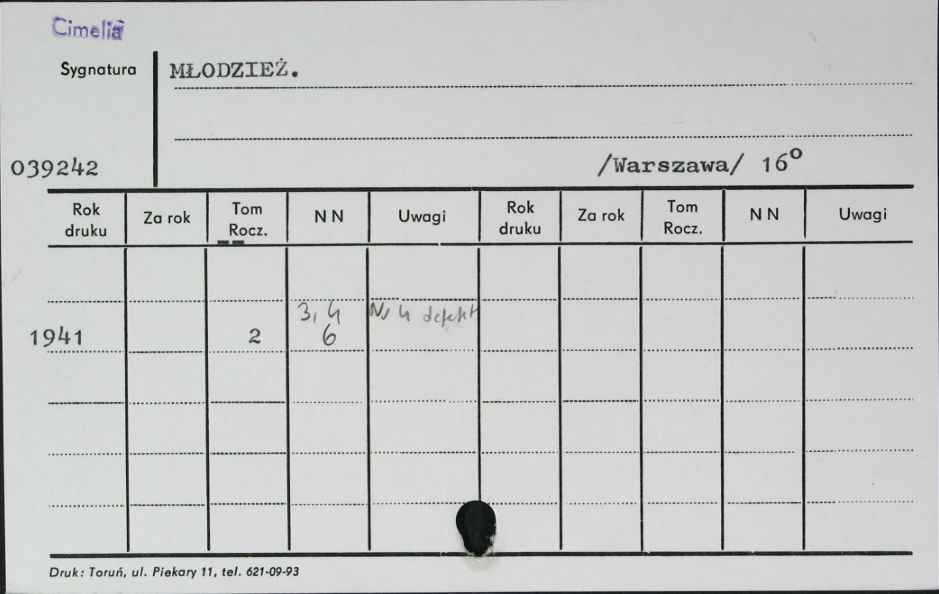 Cimelia
Sygnatura MŁODZIEŻ.
039242 /Warszawa/ 16⁰
Rok druku Za rok Tom Rocz. N N Uwagi Rok druku Za rok Tom Rocz. N N Uwagi
3, 4 Nr 4 defekt
1941 2 6
Druk: Toruń, ul. Piekary 11, tel. 621-09-93